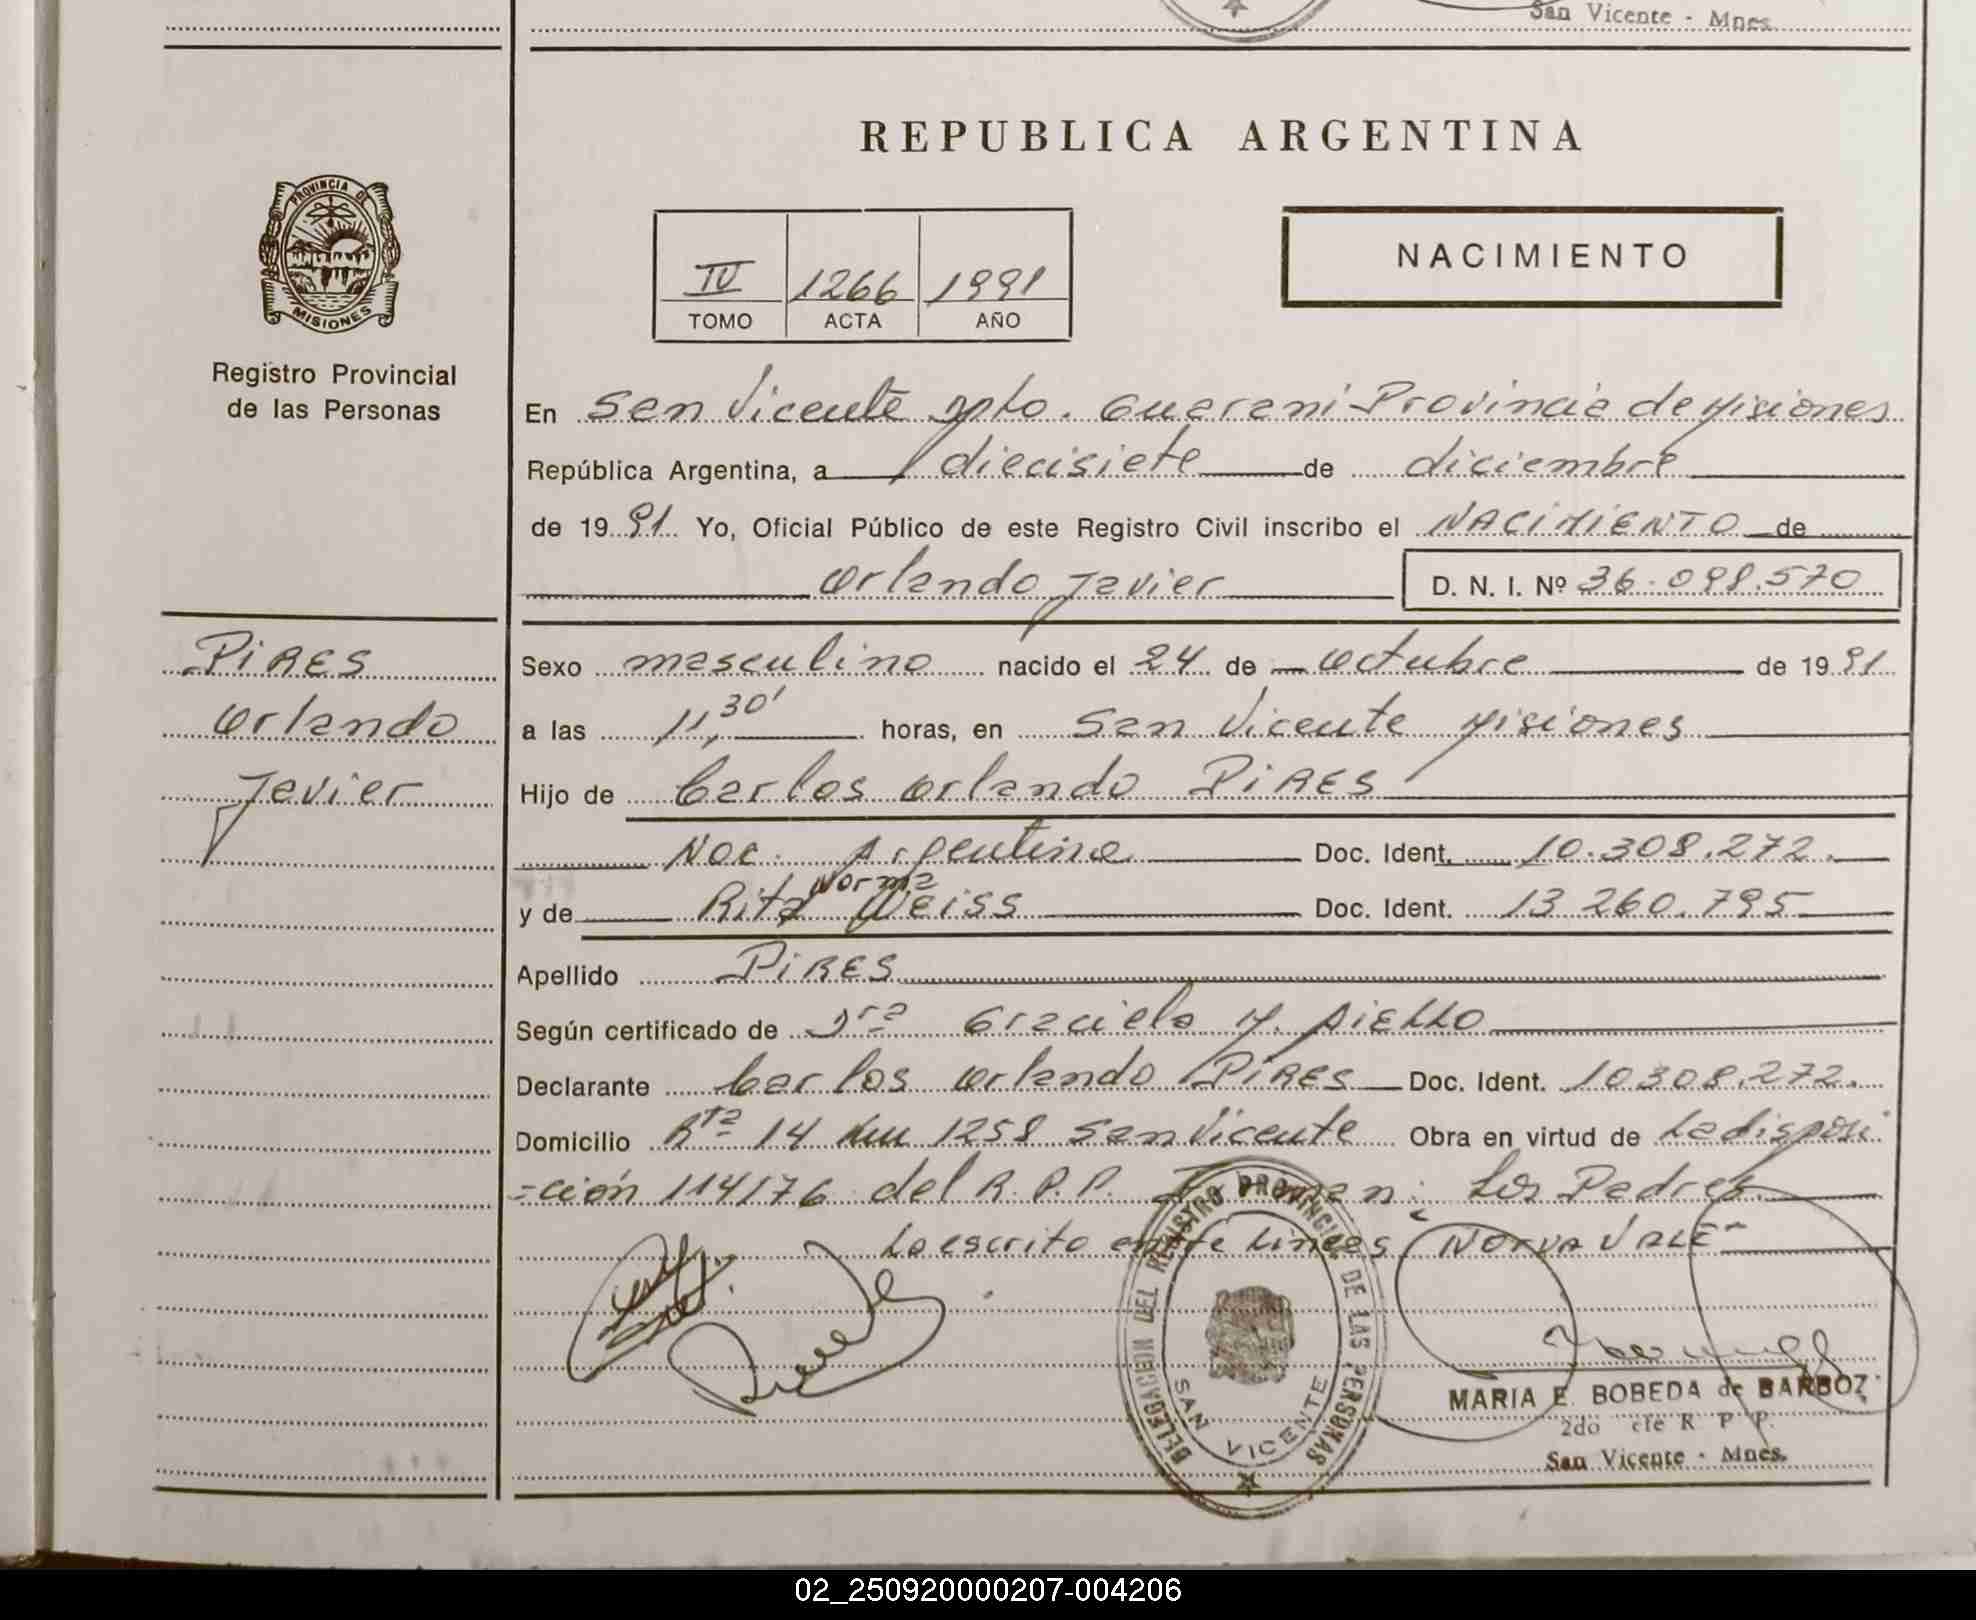 San Vicente - Mnes.
REPUBLICA ARGENTINA
PROVINCIA DE
MISIONES
Registro Provincial
de las Personas
IV 1266 1991
TOMO ACTA AÑO
NACIMIENTO
En San Vicente Dpto. Guarani Provincia de Misiones
República Argentina, a diecisiete de diciembre
de 1991 Yo, Oficial Público de este Registro Civil inscribo el NACIMIENTO de
Orlando Javier D. N. I. Nº 36.098.570
PIRES
Orlando
Javier
Sexo masculino nacido el 24 de octubre de 1991
a las 11,30' horas, en San Vicente Misiones
Hijo de Carlos Orlando PIRES
Nac. Argentina Doc. Ident. 10.308.272.
Norma
y de Rita Weiss Doc. Ident. 13 260.795
Apellido PIRES
Según certificado de Dra Graciela M. AIELLO
Declarante Carlos Orlando PIRES Doc. Ident. 10308.272.
Domicilio Rta 14 km 1258 San Vicente Obra en virtud de La disposi
=ción 114/76 del R.P.P. Firman: Los Padres
Lo escrito entre Lineas NORMA VALE
DELEGACION DEL REGISTRO PROVINCIAL DE LAS PERSONAS
SAN VICENTE
MARIA E. BOBEDA de BARBOZ
2do R P P.
San Vicente - Mnes.
02_250920000207-004206